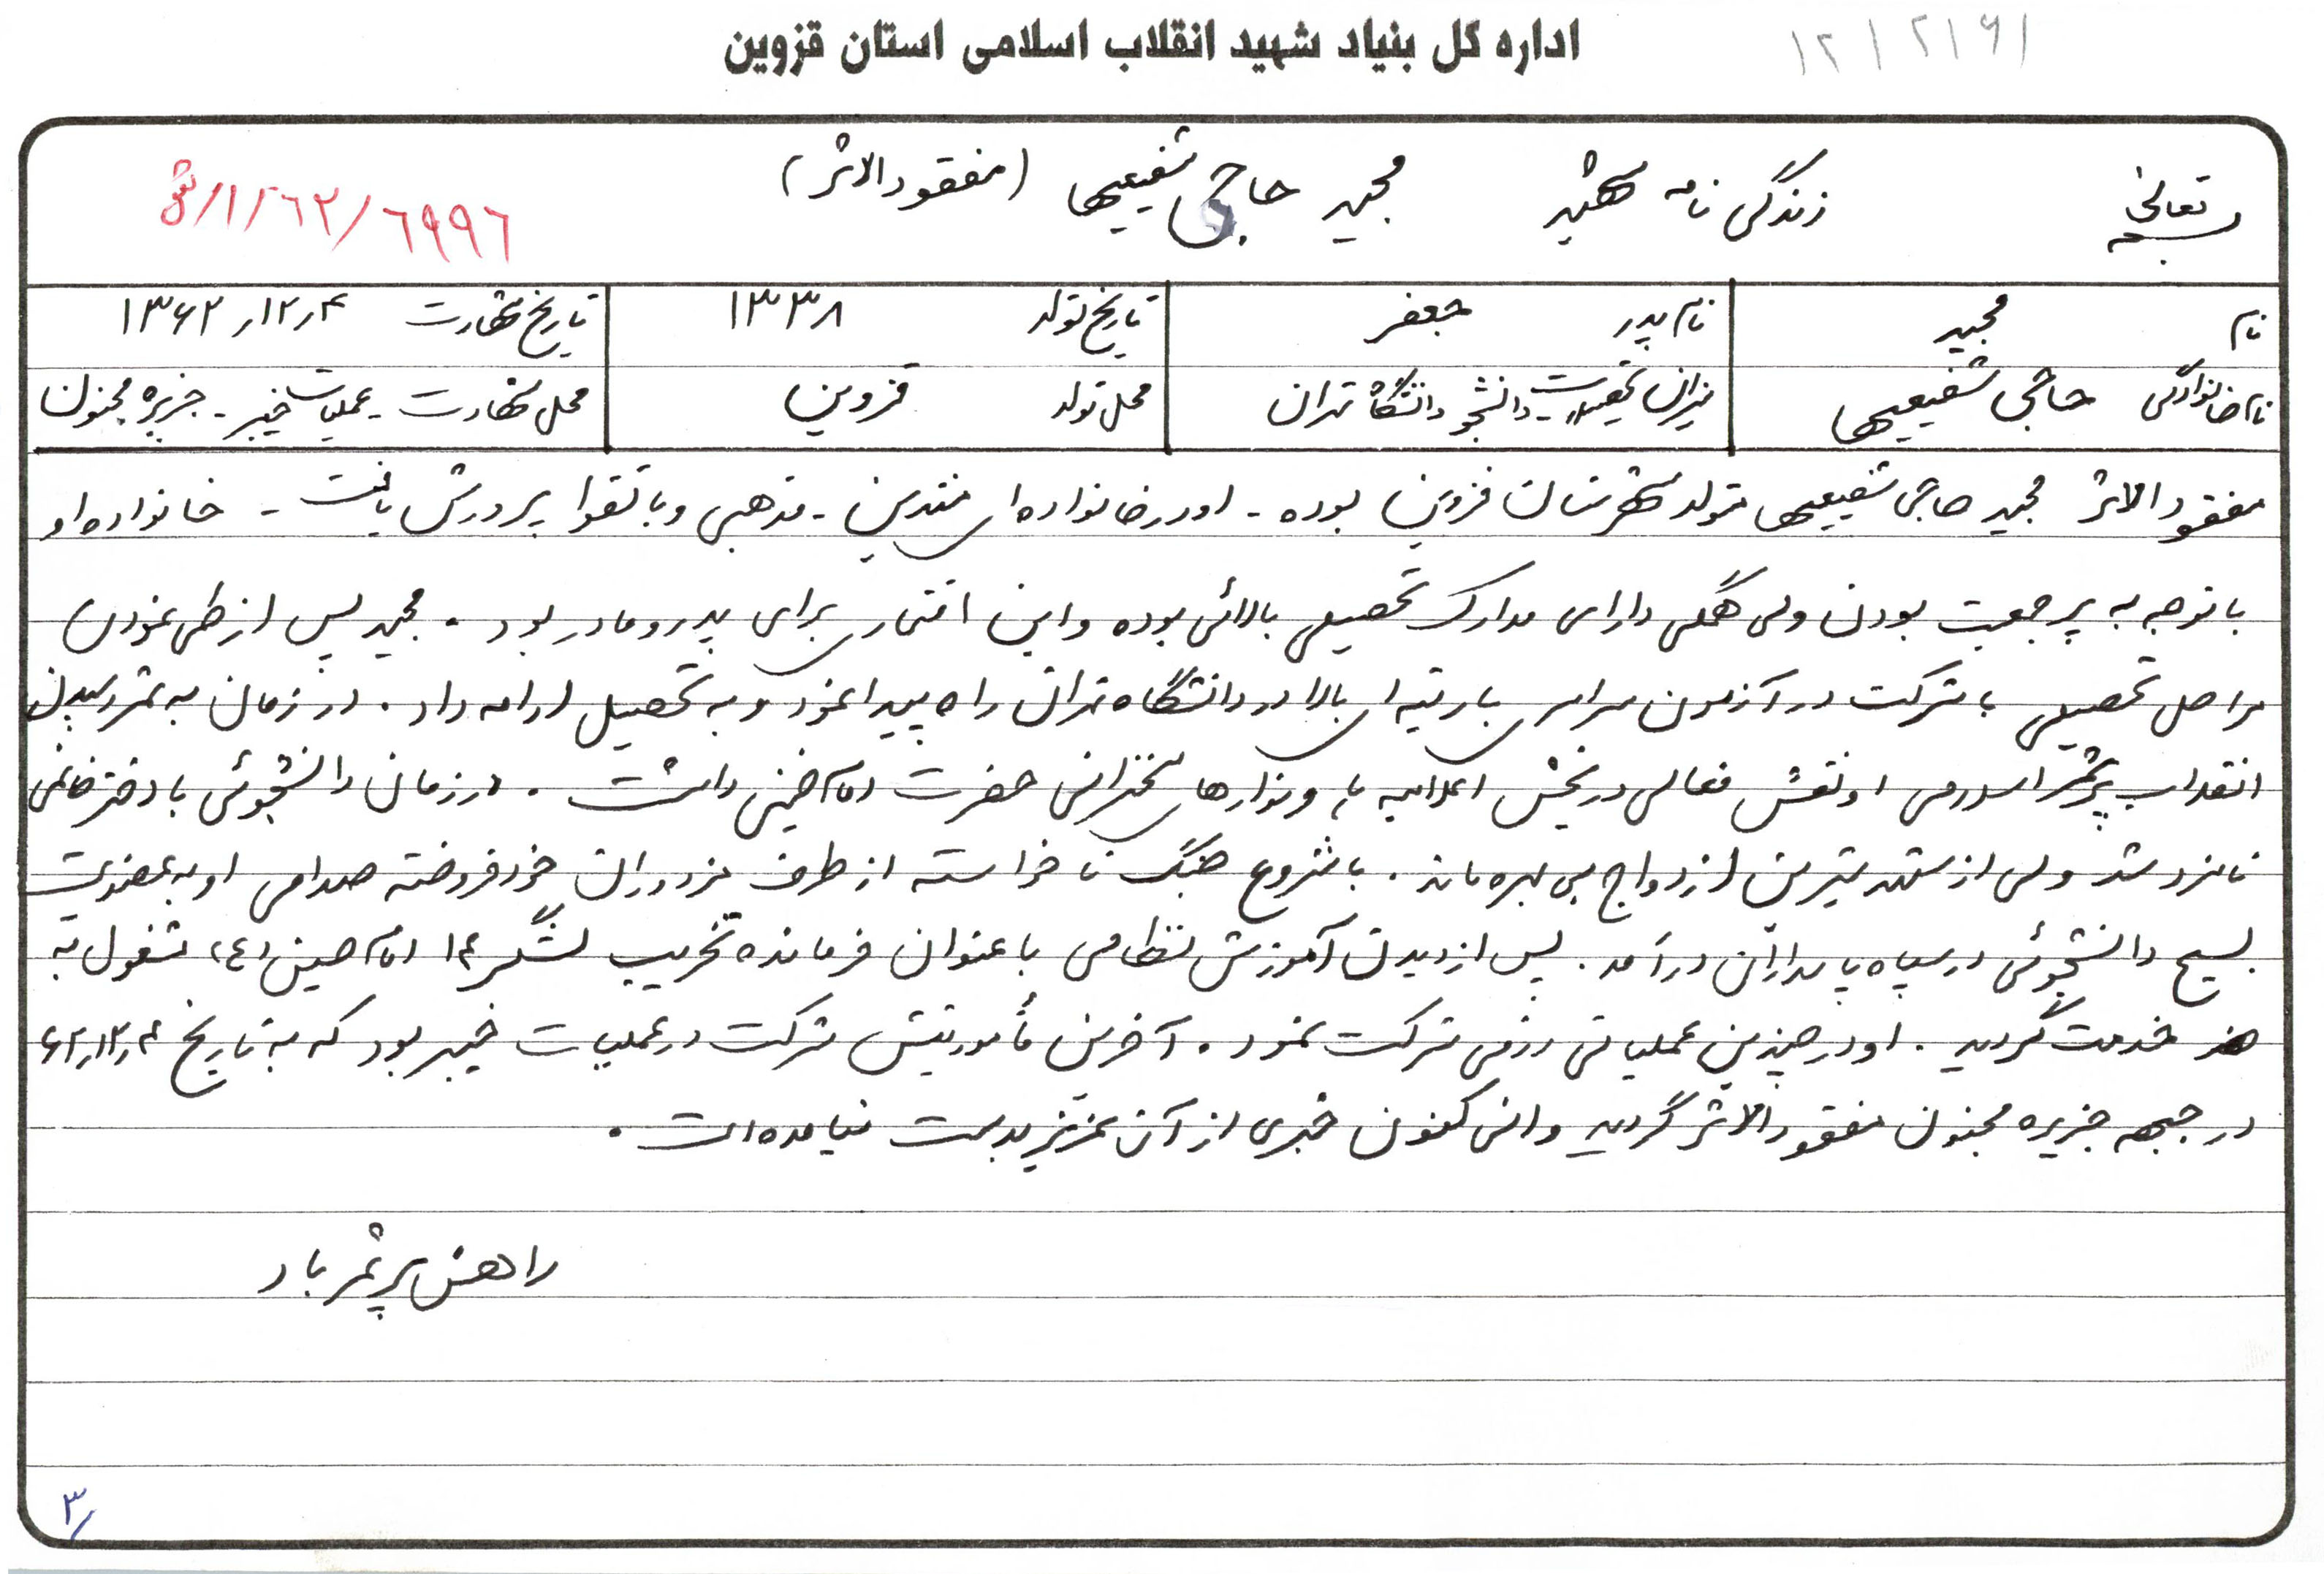 اداره کل بنیاد شهید انقلاب اسلامی استان قزوین
۱۲/۲/۶۱
بسمه تعالی
زندگی نامه شهید مجید حاجی شفیعیها (مفقودالاثر)
۶۹۹۶/۶۲/۱/ش
نام مجید نام پدر جعفر تاریخ تولد ۱۳۳۸ تاریخ شهادت ۱۳۶۲ر۱۲ر۴
نام خانوادگی حاجی شفیعیها میزان تحصیلات - دانشجو دانشگاه تهران محل تولد قزوین محل شهادت - عملیات خیبر - جزیره مجنون
مفقودالاثر مجید حاجی شفیعیها متولد شهرستان قزوین بوده - او در خانواده ای متدین - مذهبی و با تقوا پرورش یافت - خانواده او
با توجه به پر جمعیت بودن ولی همگی دارای مدارک تحصیلی بالائی بوده و این افتخاری برای پدر و مادر بود . مجید پس از طی نمودن
مراحل تحصیلی با شرکت در آزمون سراسری با رتبه ای بالا در دانشگاه تهران راه پیدا نمود و به تحصیل ادامه داد . در زمان به ثمر رسیدن
انقلاب پرثمر اسلامی او نقش فعالی در پخش اعلامیه ها و نوارهای سخنرانی حضرت امام خمینی داشت . در زمان دانشجوئی با دختر خانمی
نامزد شد ولی از شهد شیرین ازدواج بی بهره ماند . با شروع جنگ نا خواسته از طرف مزدوران خود فروخته صدامی او به عضویت
بسیج دانشجوئی در سپاه پاسداران در آمد . پس از دیدن آموزش نظامی با عنوان فرمانده تخریب لشگر ۱۴ امام حسین (ع) مشغول به
خدمت گردید . او در چندین عملیاتی رزمی شرکت نمود . آخرین مأموریتش شرکت در عملیات خیبر بود که به تاریخ ۶۲ر۱۲ر۴
در جبهه جزیره مجنون مفقودالاثر گردید و الی کنون خبری از آن عزیز بدست نیامده است .
راهش پر ثمر باد
۳/